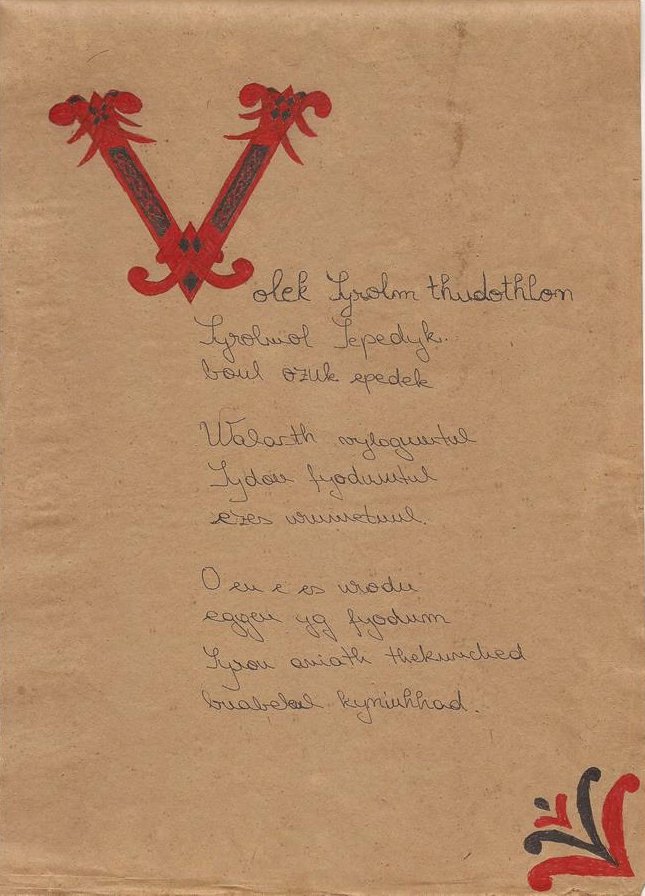 Volek Syrolm thudothlon
Syrolmol Sepedyk.
buol ozuk epedek
Walasth vylagumtul
Sydou fyodumtul
ezes urumetuul.
O en e es urodu
eggen yg fyodum
Syrou aniath thekunched
buabeleul kyniuhhad.